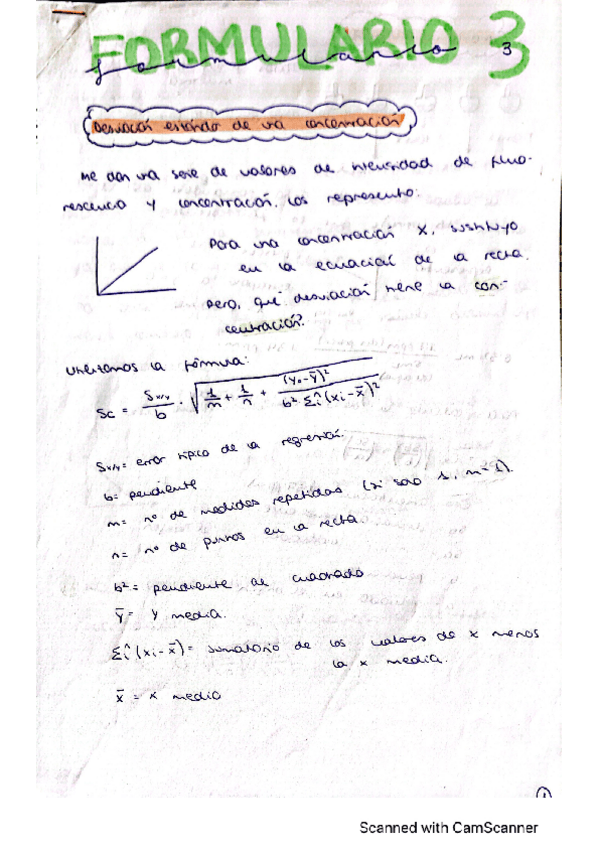 FORMULARIO 3
formulario 3
Desviación estándar de una concentración
Me dan una serie de valores de intensidad de fluo-
rescencia y concentración. Los represento:
Para una concentración X, sustituyo
en la ecuación de la recta.
Pero, qué desviación tiene la con-
centración?
Utilizamos la fórmula:
Sc = Sx/y / b · √(1/m + 1/n + (y₀-ȳ)² / b²·Σᵢⁿ(xi-x̄)²)
Sx/y= error típico de la regresión.
b= pendiente
m= nº de medidas repetidas (si solo 1, m=1).
n= nº de puntos en la recta.
b²= pendiente al cuadrado
ȳ= y media.
Σᵢⁿ(xi-x̄)= sumatorio de los valores de x menos
la x media.
x̄ = x media
1
Scanned with CamScanner